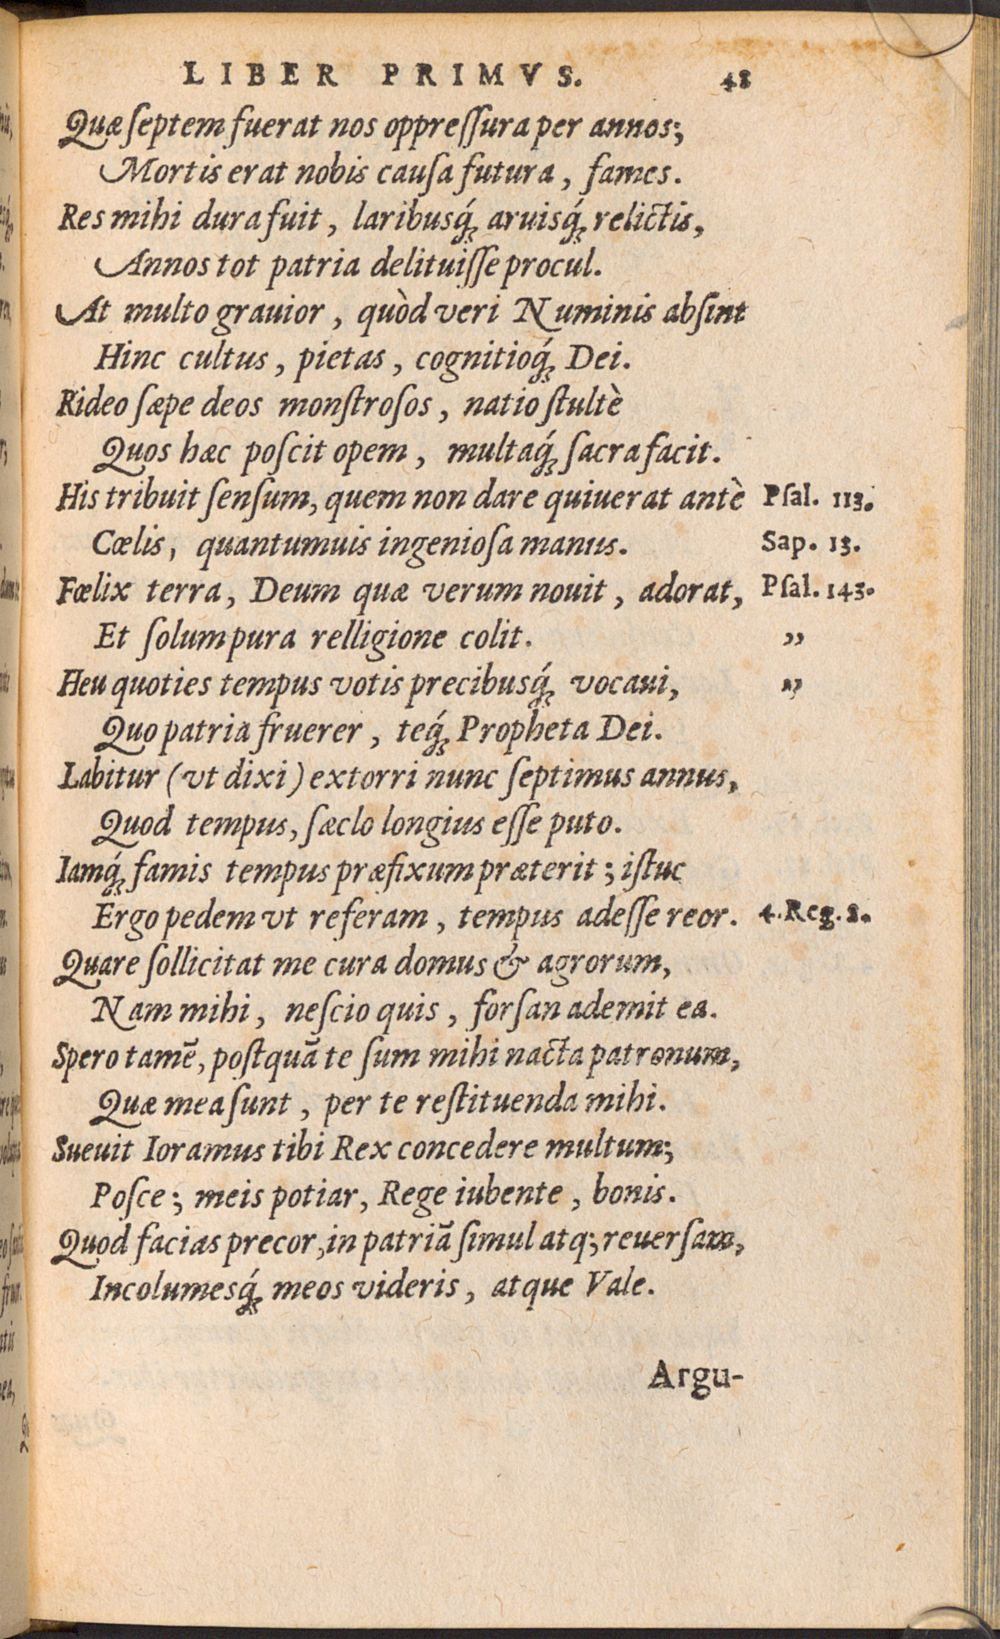 LIBER PRIMVS. 48
Quæ ſeptem fuerat nos oppreſſura per annos;
Mortis erat nobis cauſa futura, fames.
Res mihi dura fuit, laribusq́; aruisq́; relictis,
Annos tot patria delituiſſe procul.
At multo grauior, quòd veri Numinis abſint
Hinc cultus, pietas, cognitioq́; Dei.
Rideo ſæpe deos monſtroſos, natio ſtultè
Quos hæc poſcit opem, multaq́; ſacra facit.
His tribuit ſenſum, quem non dare quiuerat antè Pſal. 113.
Cœlis, quantumuis ingenioſa manus. Sap. 13.
Fœlix terra, Deum quæ verum nouit, adorat, Pſal. 143.
Et ſolum pura relligione colit. ”
Heu quoties tempus votis precibusq́; vocaui, ”
Quo patria fruerer, teq́; Propheta Dei.
Labitur (vt dixi) extorri nunc ſeptimus annus,
Quod tempus, ſæclo longius eſſe puto.
Iamq́; famis tempus præfixum præterit; iſtuc
Ergo pedem vt referam, tempus adeſſe reor. 4. Reg. 8.
Quare ſollicitat me cura domus & agrorum,
Nam mihi, neſcio quis, forſan ademit ea.
Spero tamē, poſtquā te ſum mihi nacta patronum,
Quæ mea ſunt, per te reſtituenda mihi.
Sueuit Ioramus tibi Rex concedere multum;
Poſce; meis potiar, Rege iubente, bonis.
Quod facias precor, in patriā ſimul atq; reuerſam,
Incolumesq́; meos videris, atque Vale.
Argu-